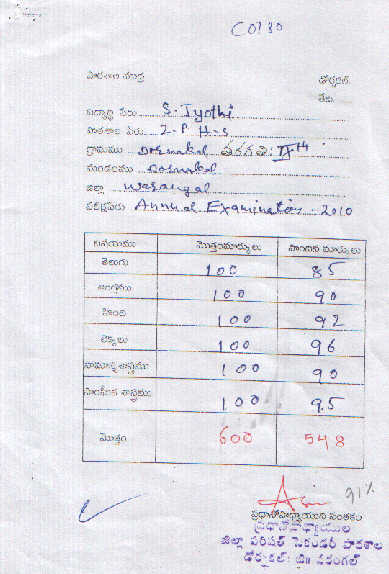 C0780
పాఠశాల ముద్ర డోర్నకల్
తేది.
విద్యార్థి పేరు S. Jyothi
పాఠశాల పేరు Z. P. H. S
గ్రామము Dornakal తరగతి: IX th
మండలము Dornakal
జిల్లా Warangal
పరీక్షపేరు Annual Examination - 2010
విషయము మొత్తంమార్కులు పొందిన మార్కులు
తెలుగు 100 85
ఆంగ్లము 100 90
హింది 100 92
లెక్కలు 100 96
సామాన్య శాస్త్రము 100 90
సాంఘీక శాస్త్రము 100 95
మొత్తం 600 548
91%
ప్రధానోపాధ్యాయుని సంతకం
ప్రధానోపాధ్యాయుల
జిల్లా పరిషత్ సెకండరీ పాఠశాల
డోర్నకల్: జిల్లా వరంగల్